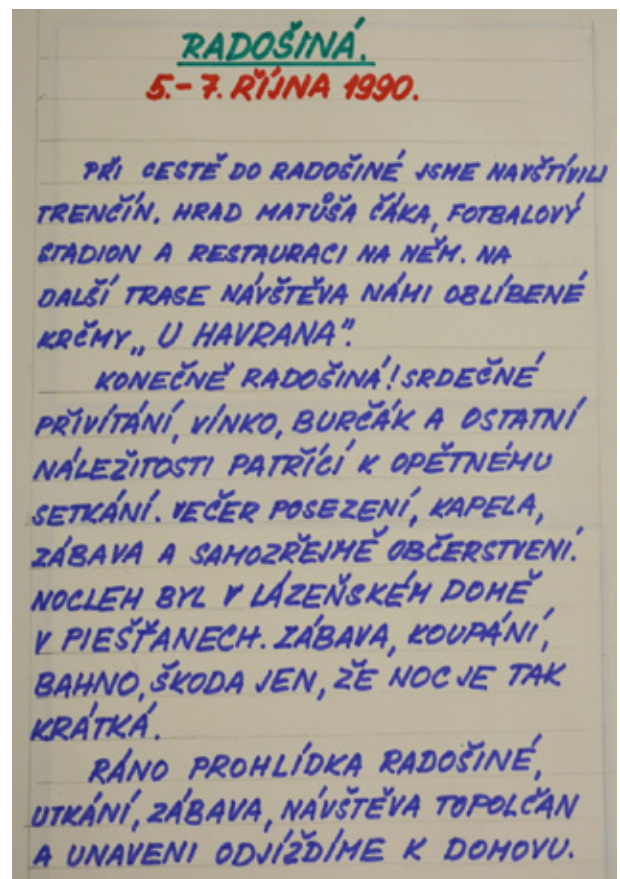 RADOŠINÁ.
5.-7. ŘÍJNA 1990.
PŘI CESTĚ DO RADOŠINÉ JSME NAVŠTÍVILI
TRENČÍN. HRAD MATŮŠA ČÁKA, FOTBALOVÝ
STADION A RESTAURACI NA NĚM. NA
DALŠÍ TRASE NÁVŠTĚVA NÁMI OBLÍBENÉ
KRČMY „U HAVRANA".
KONEČNĚ RADOŠINÁ! SRDEČNÉ
PŘIVÍTÁNÍ, VÍNKO, BURČÁK A OSTATNÍ
NÁLEŽITOSTI PATŘÍCÍ K OPĚTNÉMU
SETKÁNÍ. VEČER POSEZENÍ, KAPELA,
ZÁBAVA A SAMOZŘEJMĚ OBČERSTVENÍ.
NOCLEH BYL V LÁZEŇSKÉM DOMĚ
V PIEŠŤANECH. ZÁBAVA, KOUPÁNÍ,
BAHNO, ŠKODA JEN, ŽE NOC JE TAK
KRÁTKÁ.
RÁNO PROHLÍDKA RADOŠINÉ,
UTKÁNÍ, ZÁBAVA, NÁVŠTĚVA TOPOLČAN
A UNAVENI ODJÍŽDÍME K DOMOVU.